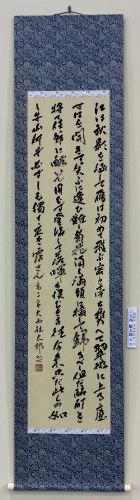 江は秋影を涵して雁は初めて飛ぶ客と壺を携へて翠微に上る塵
世口を開きて笑ふに逢ひ難し菊花須らく満頭に挿して帰るべし但だ酩酊を
将て佳節に酬いん用ひず登臨して落暉を恨むを古往今来只だ此くの如
し牛山何ぞ必ずしも独り衣を霑さん